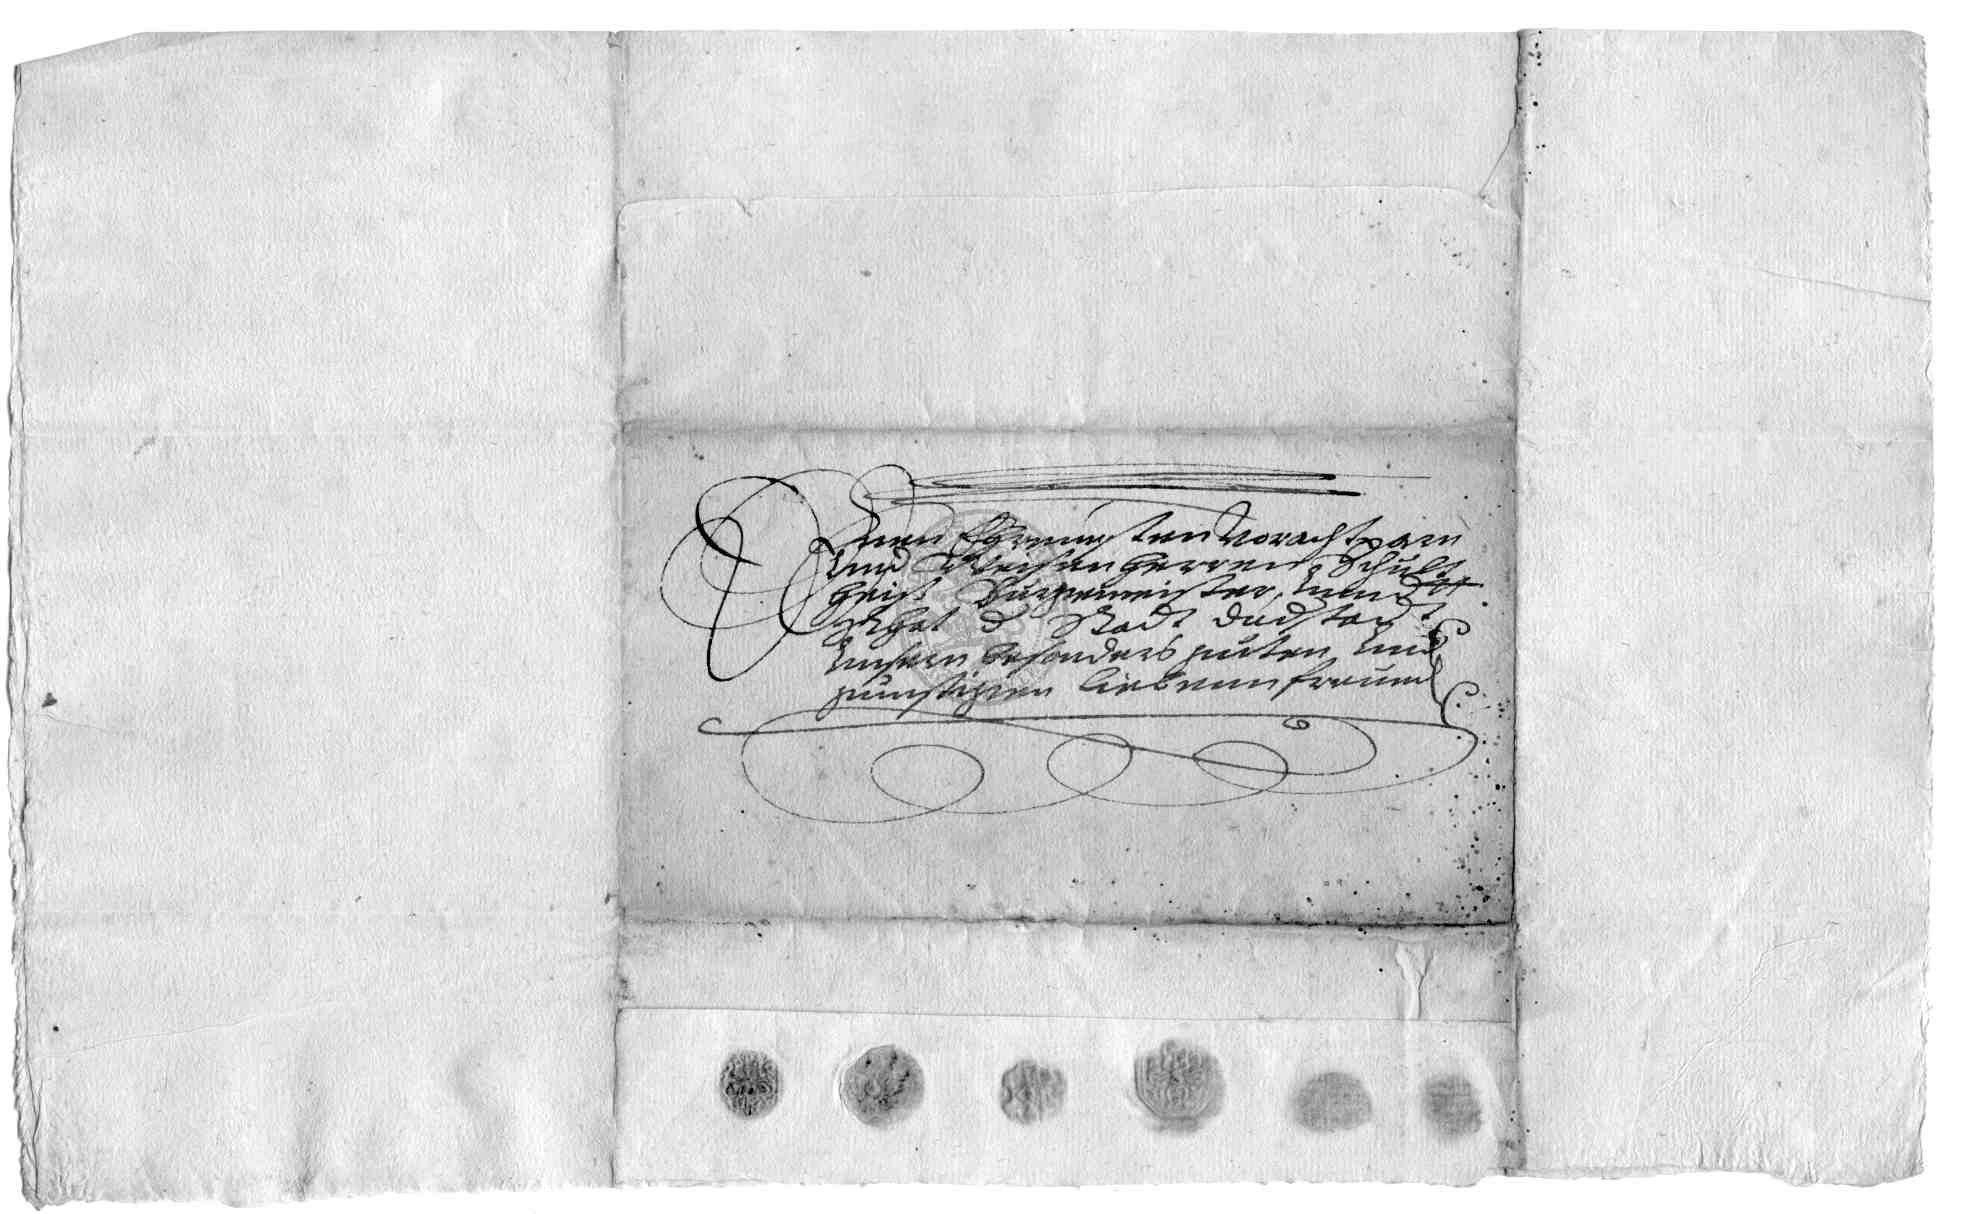 Denen Ehrnuesten Vorachtparn
Vnnd Weisen Herren, Schult
heiß Burgemeister, Vnnd
Rhat d Stadt
Vnsern besonders guten Vnd
gunstigen lieben freund